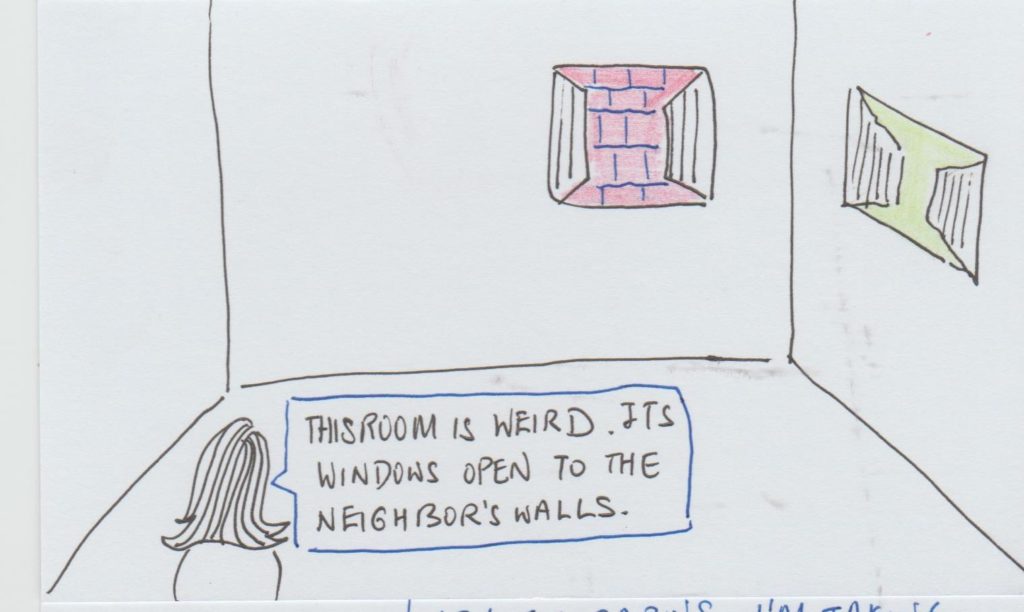 THIS ROOM IS WEIRD. ITS
WINDOWS OPEN TO THE
NEIGHBOR'S WALLS.